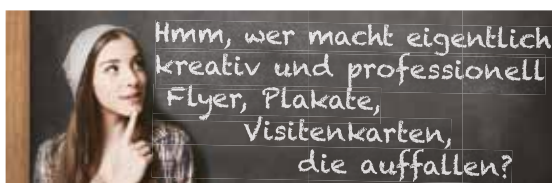 Hmm, wer macht eigentlich
kreativ und professionell
Flyer, Plakate,
Visitenkarten,
die auffallen?